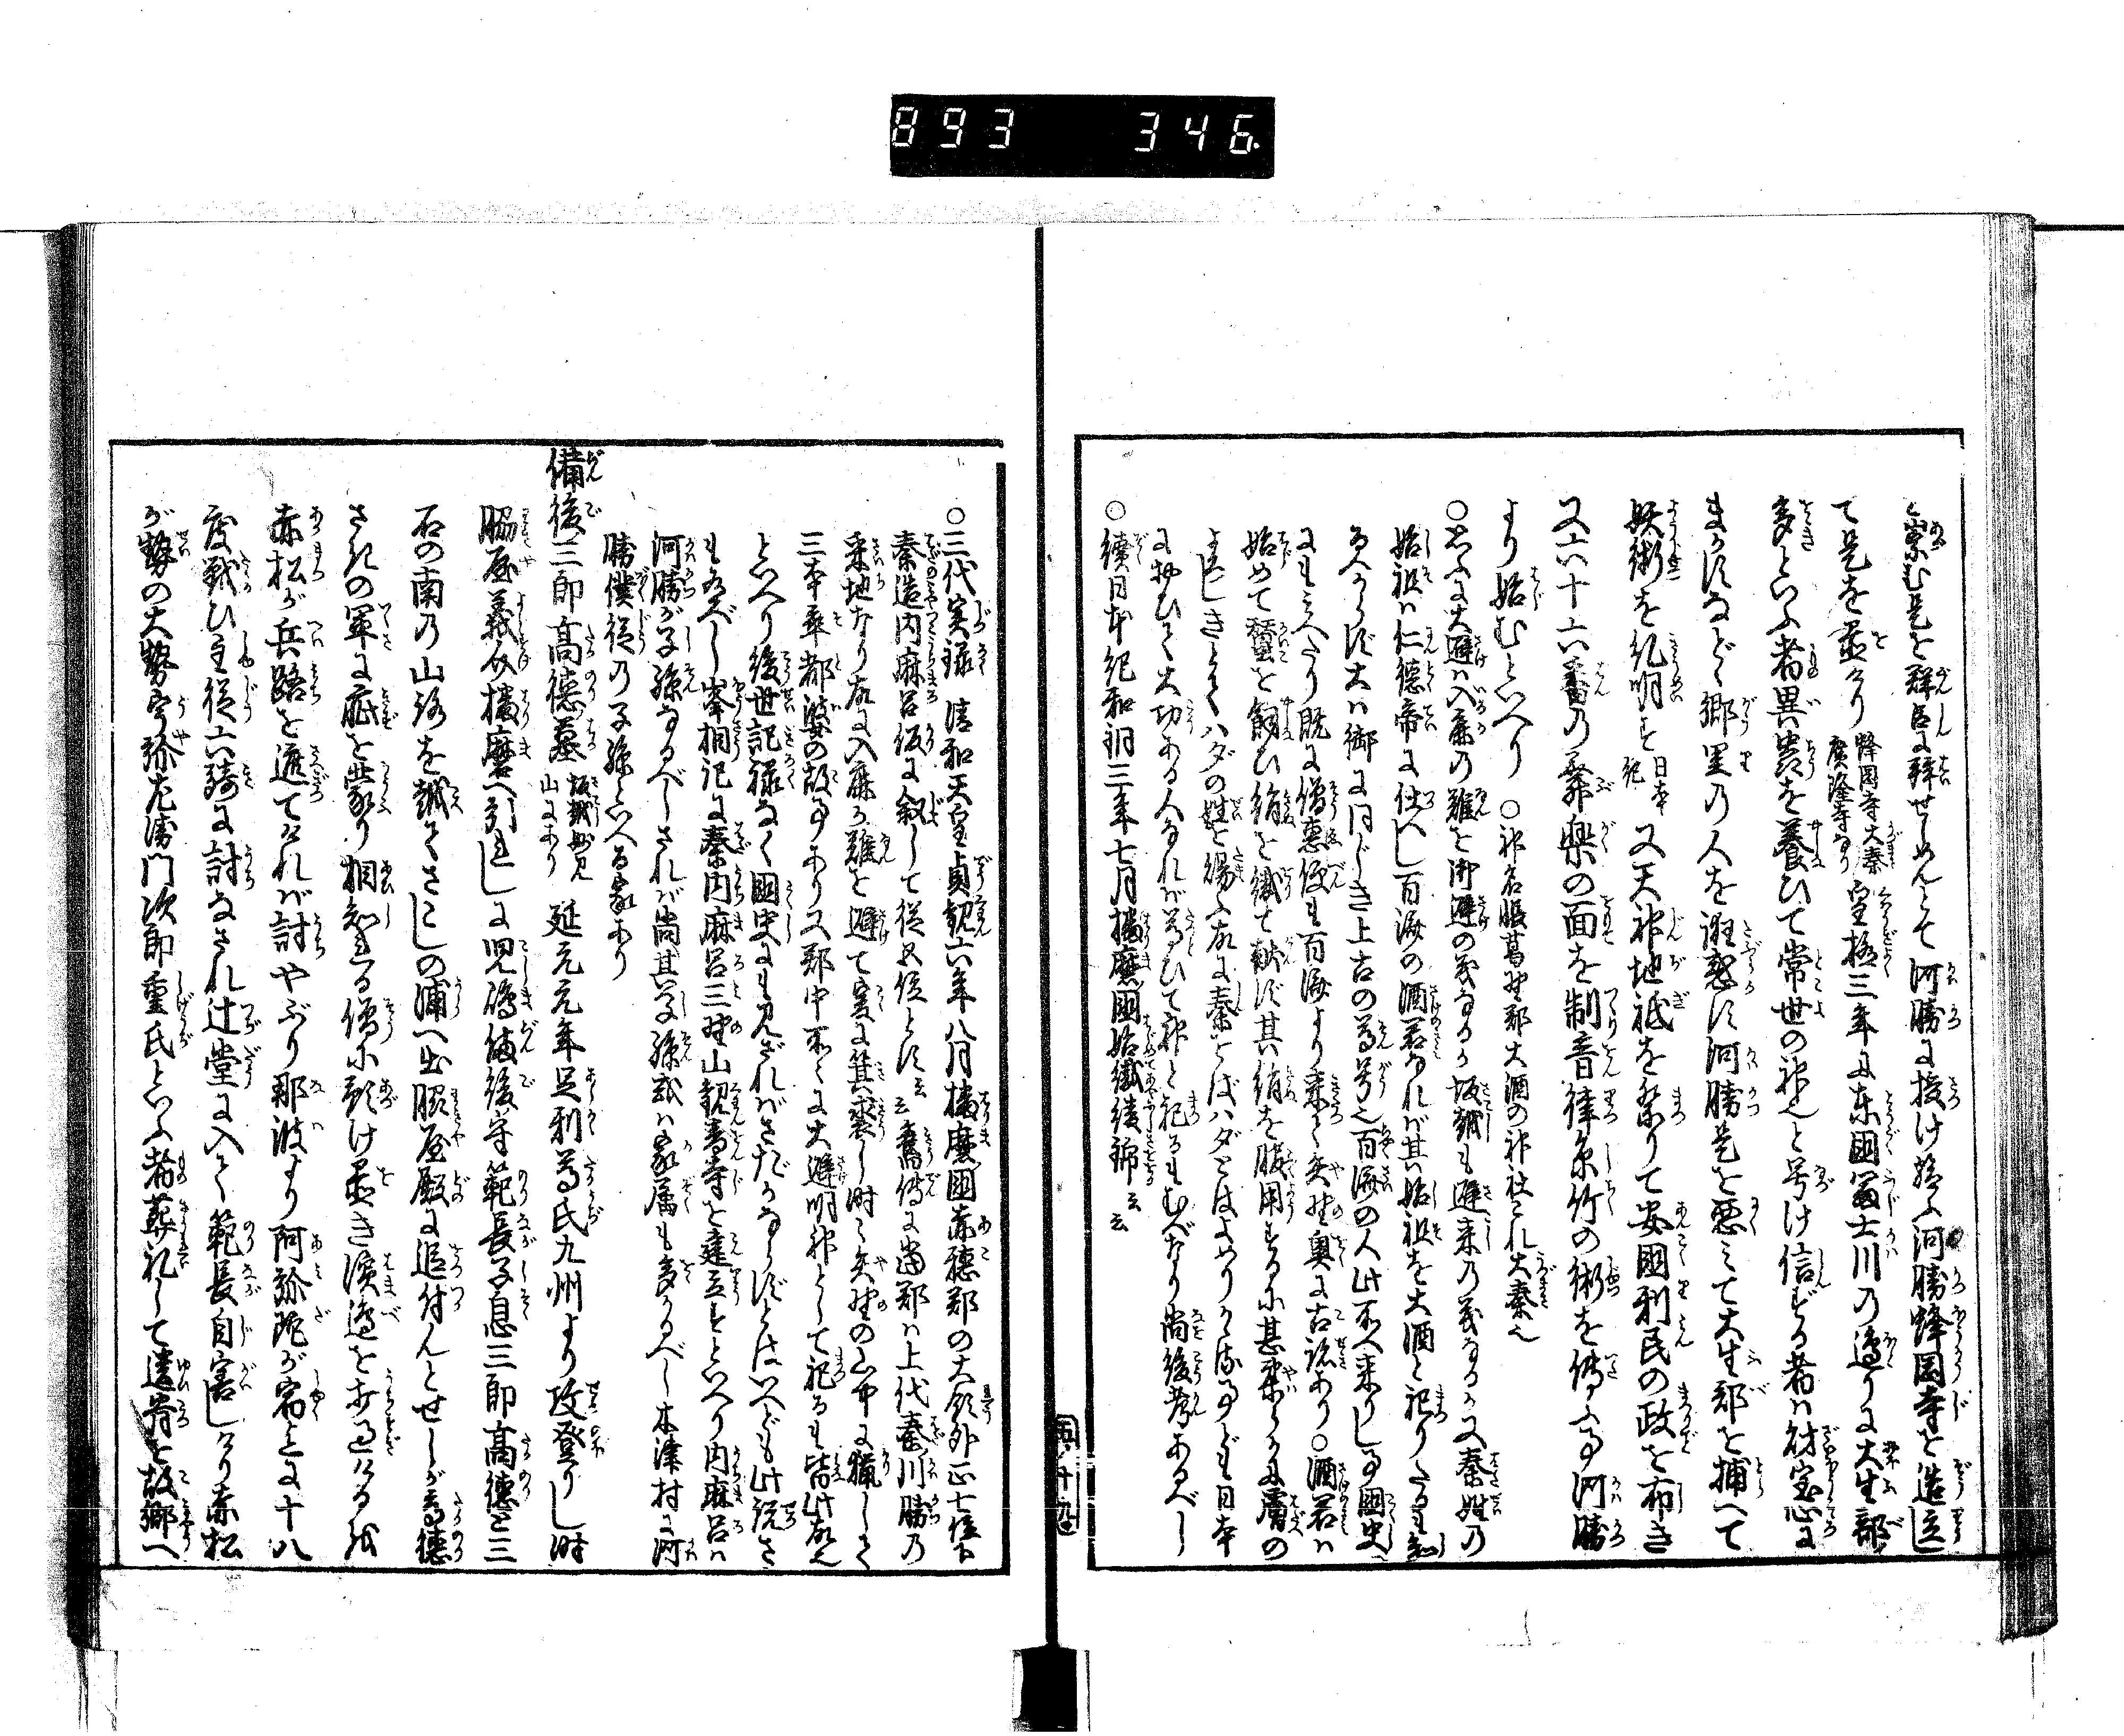 893 346
く崇む是を群臣に辞せしめんとて河勝に授け給ふ河勝蜂岡寺を造立し
て是を置けり 蜂岡寺大秦廣隆寺なり 皇極三年に東國冨士川の邉りに大生部
多といふ者異虫を養ひて常世の神と号け信ずる者は材宝心に
まかすなどゝ郷里の人を誑惑す河勝是を悪みて大生部を捕へて
妖術を糺明す 日本紀 又天神地祇を祭りて安國利民の政を布き
又六十六番の舞楽の面を制音律糸竹の術を傳ふ事河勝
より始むといへり ○神名帳葛野郡大酒の神社これ大秦也
○思ふに大避は入鹿の難を御避の義なるか坂越も避来の義なるか又秦姓の
始祖は仁徳帝に仕へし百済の酒君なれば其始祖を大酒と祀りたるも知
るべからず大は御に同じき上古の尊号也百済の人此所へ来りし事國史
にも見へたり既に僧惠便も百済より来て矢野奥に古跡あり○酒君は
始めて蚕を飼ひ絹を織て献ず其絹を服用するに甚柔らかに膚の
よろしきとてハダの姓を賜ふ故に秦をばハダとはよめりかゝる事ども日本
に物ひて大功ある人なれば尊ひて神と祀るもむべなり尚後考あるべし
○續日本紀和銅三年七月播磨國始織綾錦云云
○三代実録 清和天皇貞観六年八月播磨國赤穂郡の大領外正七位下
秦造内麻呂仮に叙して従五位とす云云舊傳に當郡は上代秦川勝の
釆地なり故に入鹿が難を避て爰に箕裘し時々矢野の山中に猟して
三本卒都婆の故事あり又郡中所々に大避明神として祀るも皆此故也
といへり後世記録なく國史にも見ざればさだかならずとはいへども此説さ
も有べし峯相記に秦内麻呂三野山観音寺を建立すといへり内麻呂は
河勝が子孫なるべしされば尚其子孫或は家属も多かるべし木津村に河
勝僕従の子孫といへる家あり
備後三郎高徳墓 坂越妙見山にあり 延元元年足利尊氏九州より攻登りし時
脇屋義介播磨へ引れしに児嶋備後守範長子息三郎高徳と三
石の南の山路を越てさこしの浦へ出脇屋殿に追付んとせしが高徳
さきの軍に疵を蒙り相知れる僧に預け置き濱邉を歩ミける処
赤松が兵路を遮てければ討やぶり那波より阿弥陀が宿迄に十八
度戦ひ主従六騎に討なされ辻堂に入て範長自害しけり赤松
が勢の大勢宇弥左衛門次郎重氏といふ者葬礼して遺骨を故郷へ